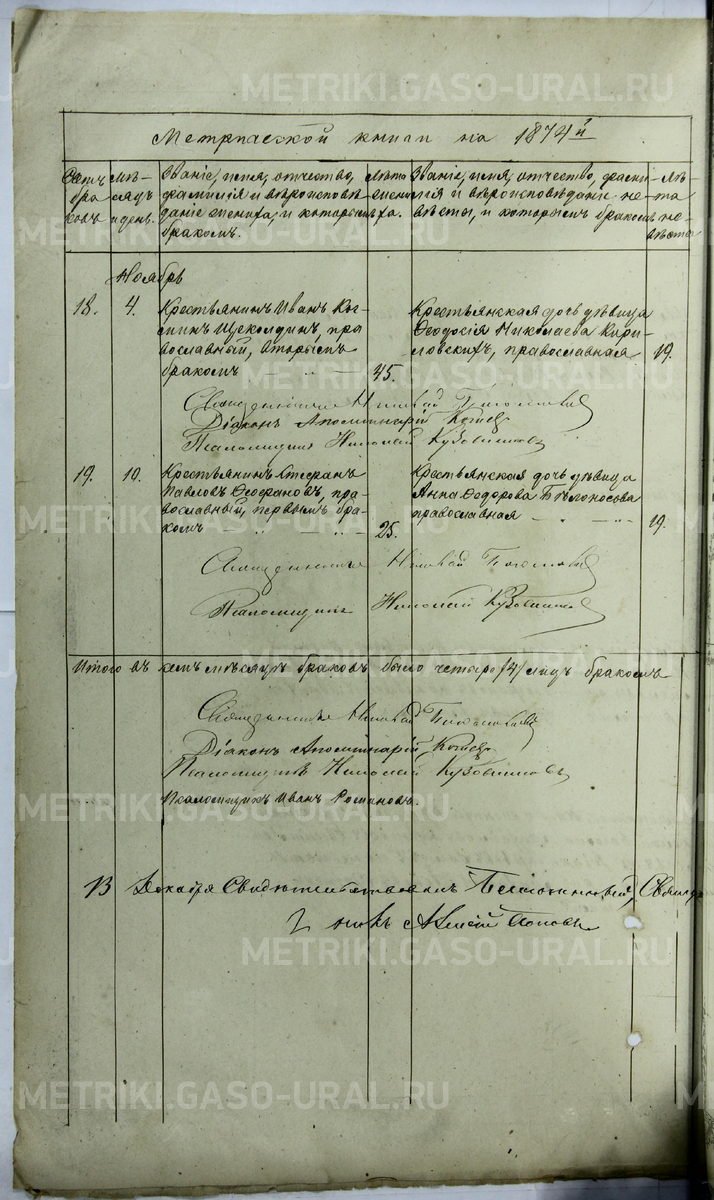 Метрической книги на 1874й
Счетъ браковъ
Мѣсяцъ и день.
Званіе, имя, отчество,
фамилія и вѣроисповѣ
даніе жениха, и которымъ
бракомъ.
Лѣта
жениха.
Званіе, имя, отчество, фами
лія и вѣроисповѣданіе не
вѣсты, и которымъ бракомъ
Лѣ-
та
не-
вѣсты
Ноябрь
18. 4.
Крестьянинъ Иванъ Кос
минъ Щеколдинъ, пра
вославный, вторымъ
бракомъ 45.
Крестьянская дочь дѣвица
Ѳеодосія Николаева Кири-
ловскихъ, православная 19.
Священникъ Николай
Діаконъ Аполлинарій
Псаломщикъ Николай Кузовниковъ
19. 10.
Крестьянинъ Стефанъ
Павловъ Ѳеофановъ, пра-
вославный, первымъ бра-
комъ 25.
Крестьянская дочь дѣвица
Анна Ѳедорова Бѣлоносова
православная 19.
Священникъ Николай
Псаломщикъ Николай Кузовниковъ
Итого въ семъ мѣсяцѣ браковъ было четыре /4/ лицъ бракомъ
Священникъ Николай
Діаконъ Аполлинарій
Псаломщикъ Николай Кузовниковъ
Псаломщикъ Иванъ Романовъ.
13 Декабря Свидѣтельствовалъ
Алексій Поповъ
METRIKI.GASO-URAL.RU